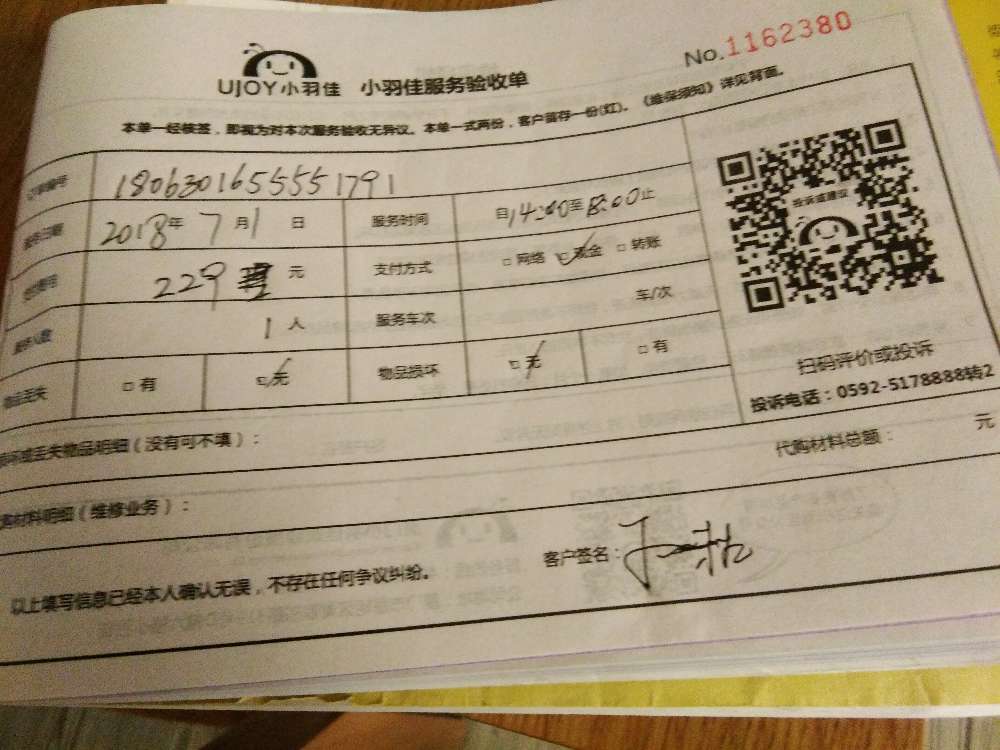 No.1162380
UJOY小羽佳 小羽佳服务验收单
本单一经核签，即视为对本次服务验收无异议。本单一式两份，客户留存一份(红)。《维保须知》详见背面。
订单编号 1806301655551791
服务日期 2018年 7月1日 服务时间 自14:00至18:00止
229 元 支付方式 □网络 ☑现金 □转账
服务人数 1人 服务车次 车/次
物品丢失 □有 ☑无 物品损坏 ☑无 □有
投诉或建议
扫码评价或投诉
投诉电话：0592-5178888转2
损坏或丢失物品明细（没有可不填）：
代购材料总额： 元
代购材料明细（维修业务）：
以上填写信息已经本人确认无误，不存在任何争议纠纷。 客户签名：